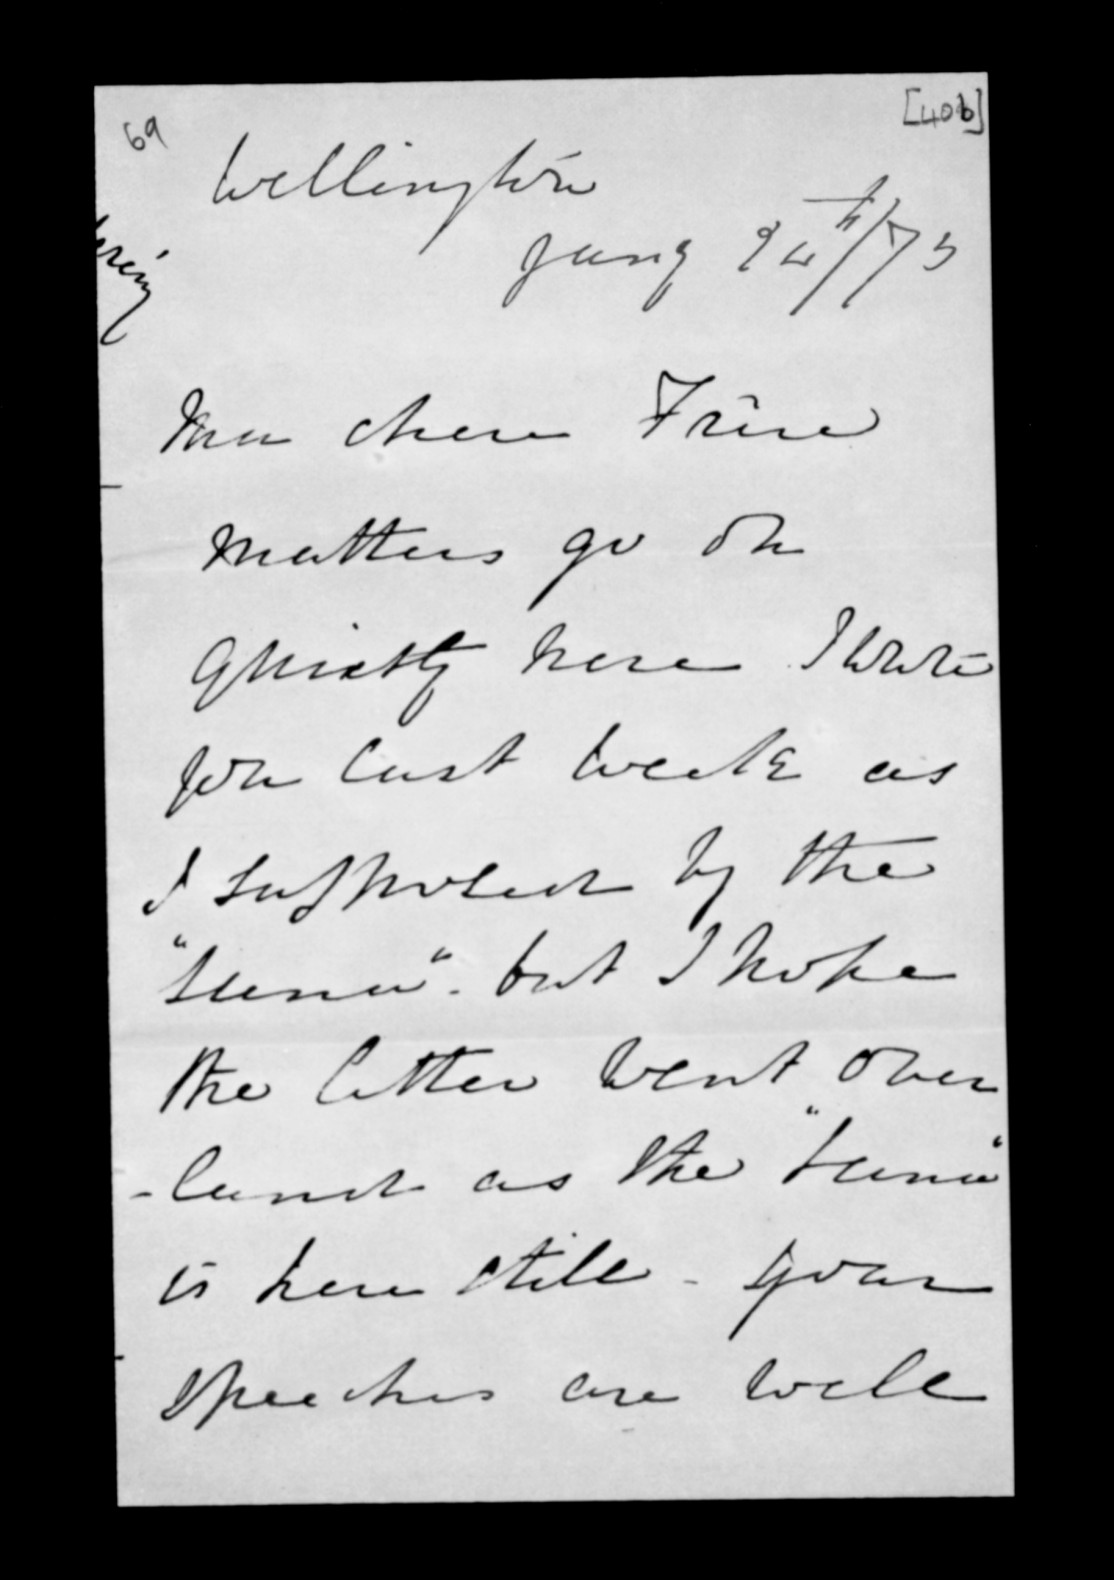 69
[406]
Wellington
Jany 24th/73
Mon chere Frere
Matters go on
quietly here I wrote
you last week as
I supposed by the
"Luna". but I hope
the letter went over
-land as the "Luna"
is here still - your
speeches are well